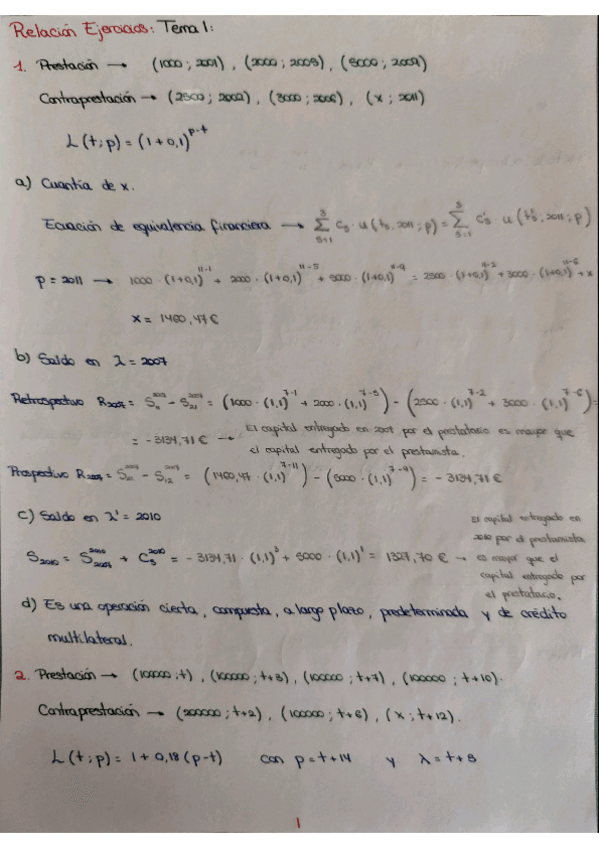 Relación Ejercicios: Tema 1:
1. Prestación → (1000; 2001), (2000; 2005), (5000; 2009)
Contraprestación → (2500; 2002), (3000; 2006), (x; 2011)
L(t;p) = (1+0,1)^{p-t}
a) Cuantía de x.
Ecuación de equivalencia financiera → ∑_{s=1}^{3} C_s · u(t_s, 2011; p) = ∑_{s=1}^{3} C'_s · u(t'_s, 2011; p)
p = 2011 → 1000 · (1+0,1)^{11-1} + 2000 · (1+0,1)^{11-5} + 5000 · (1+0,1)^{11-9} = 2500 · (1+0,1)^{11-2} + 3000 · (1+0,1)^{11-6} + x
x = 1460,47 €
b) Saldo en λ = 2007
Retrospectivo R_{2007} = S_{11}^{2007} - S_{21}^{2007} = (1000 · (1,1)^{7-1} + 2000 · (1,1)^{7-5}) - (2500 · (1,1)^{7-2} + 3000 · (1,1)^{7-6}) =
= -3134,71 € → El capital entregado en 2007 por el prestatario es mayor que
el capital entregado por el prestamista.
Prospectivo R_{2007} = - S_{12}^{2007} = (1460,47 · (1,1)^{7-11}) - (5000 · (1,1)^{7-9}) = -3134,71 €
c) Saldo en λ' = 2010
S_{2010} = S_{2007}^{2010} + C_3^{2010} = -3134,71 · (1,1)^3 + 5000 · (1,1)^1 = 1327,70 € →
El capital entregado en
2010 por el prestamista
es mayor que el
capital entregado por
el prestatario.
d) Es una operación cierta, compuesta, a largo plazo, predeterminada y de crédito
multilateral.
2. Prestación → (100000; t), (100000; t+3), (100000; t+7), (100000; t+10).
Contraprestación → (200000; t+2), (100000; t+6), (x; t+12).
L(t;p) = 1 + 0,18(p-t) con p = t+14 y λ = t+5
1